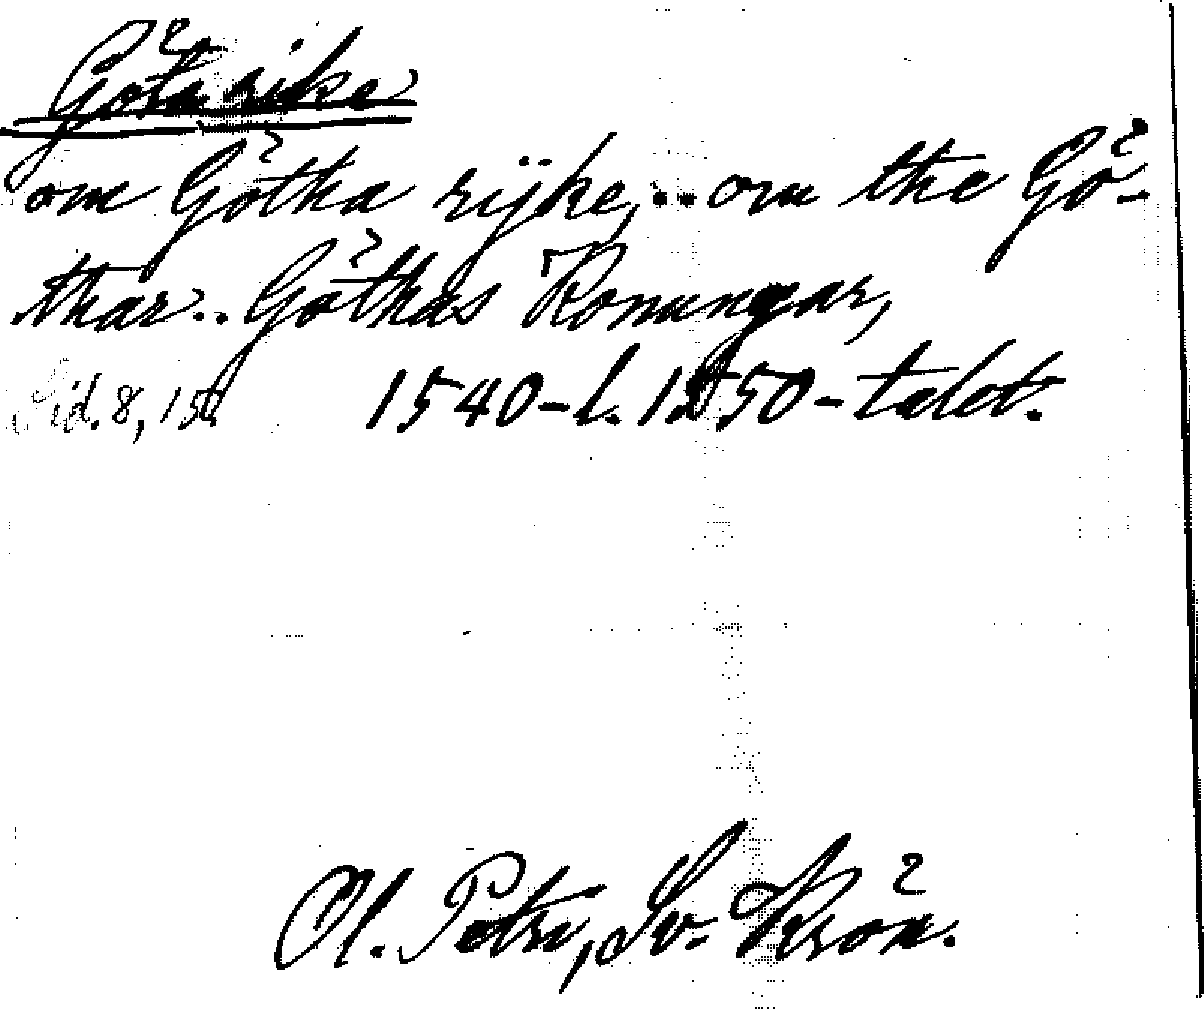 Göta rike
om Götha rijke, .. om the Gö-
thar .. Göthas Konungar,
Sid. 8, 15. 1540- l. 1550-talet.
Ol. Petri, Sv. Krön.